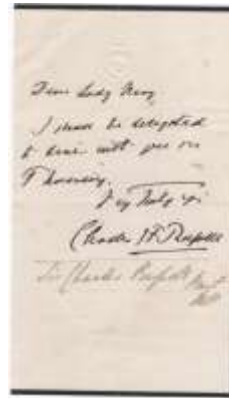 Dear Lady
I shall be delighted
to dine with you on
Thursday.
Very Truly yrs
Charles
Sir Charles